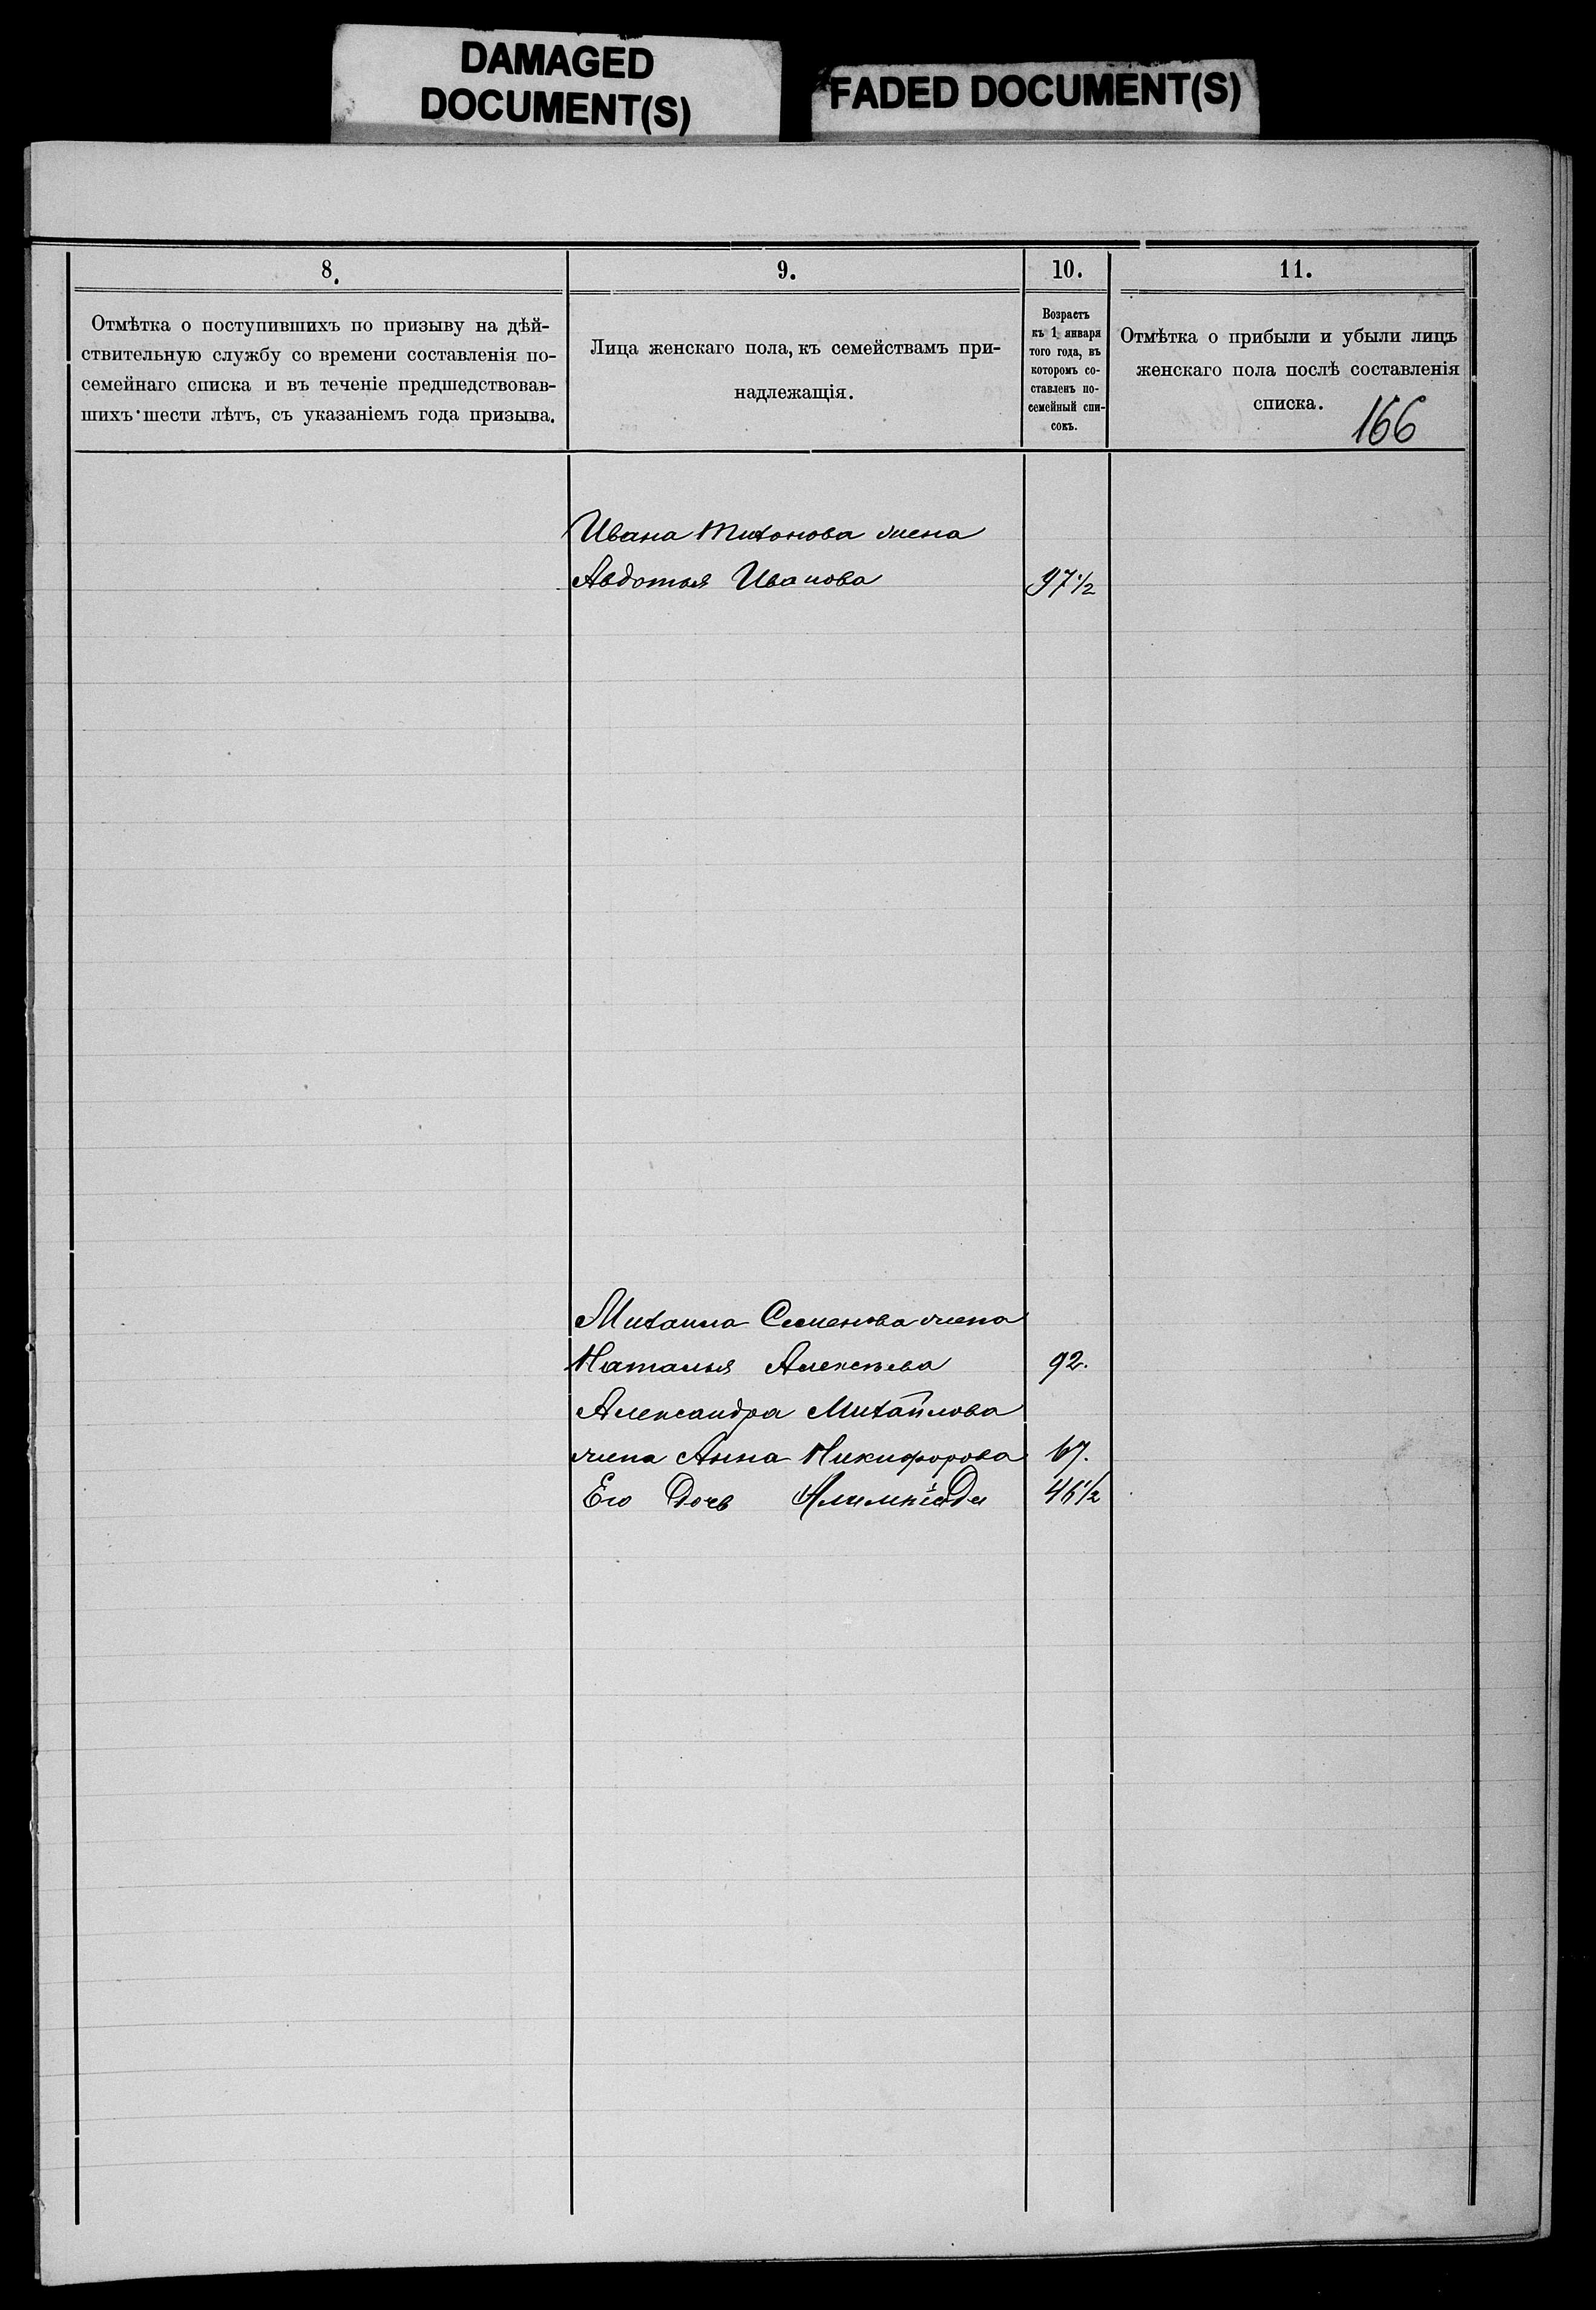 DAMAGED
DOCUMENT(S)
FADED DOCUMENT(S)
8.
Отмѣтка о поступившихъ по призыву на дѣй-
ствительную службу со времени составленія по-
семейнаго списка и въ теченіе предшедствовав-
шихъ шести лѣтъ, съ указаніемъ года призыва.
9.
Лица женскаго пола, къ семействамъ при-
надлежащія.
10.
Возрастъ
къ 1 января
того года, въ
которомъ со-
ставленъ по-
семейный спи-
сокъ.
11.
Отмѣтка о прибыли и убыли лицъ
женскаго пола послѣ составленія
списка.
166
Ивана Тихонова жена
Авдотья Иванова 97½
Михаила Семенова жена
Наталья Алексѣева 92.
Александра Михайлова
жена Анна Никифорова 67.
Его Дочь 46½